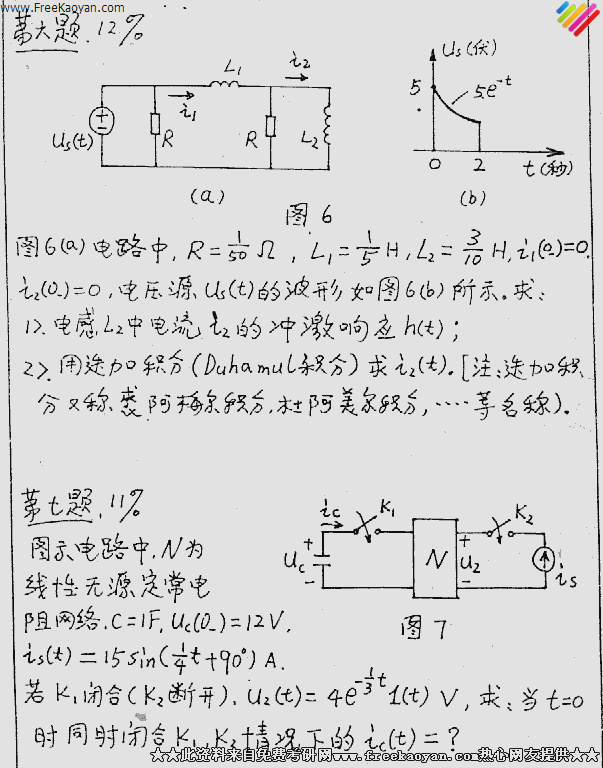 www.FreeKaoyan.com
第六题. 12%
L₁ i₂
i₁
Us(t) R R L₂
(a)
Us(伏)
5 5e^{-t}
0 2 t(秒)
(b)
图 6
图6(a)电路中, R = 1/50 Ω, L₁ = 1/5 H, L₂ = 3/10 H, i₁(0₋)=0,
i₂(0₋)=0, 电压源 Us(t)的波形如图6(b)所示. 求:
1>. 电感L₂中电流i₂的冲激响应h(t);
2>. 用迭加积分(Duhamul积分)求i₂(t). [注:迭加积
分又称裘阿梅尔积分, 杜阿美尔积分, ····等名称).
第七题. 11%
图示电路中, N为
线性无源定常电
阻网络. C=1F, Uc(0₋)=12V.
is(t)=15sin(1/4 t+90°) A.
ic K₁ K₂
Uc + - N + U₂ - is
图 7
若K₁闭合(K₂断开), U₂(t)=4e^{-1/3 t} 1(t) V, 求:当t=0
时同时闭合K₁, K₂情况下的ic(t)=?
★★此资料来自免费考研网www.freekaoyan.com热心网友提供★★